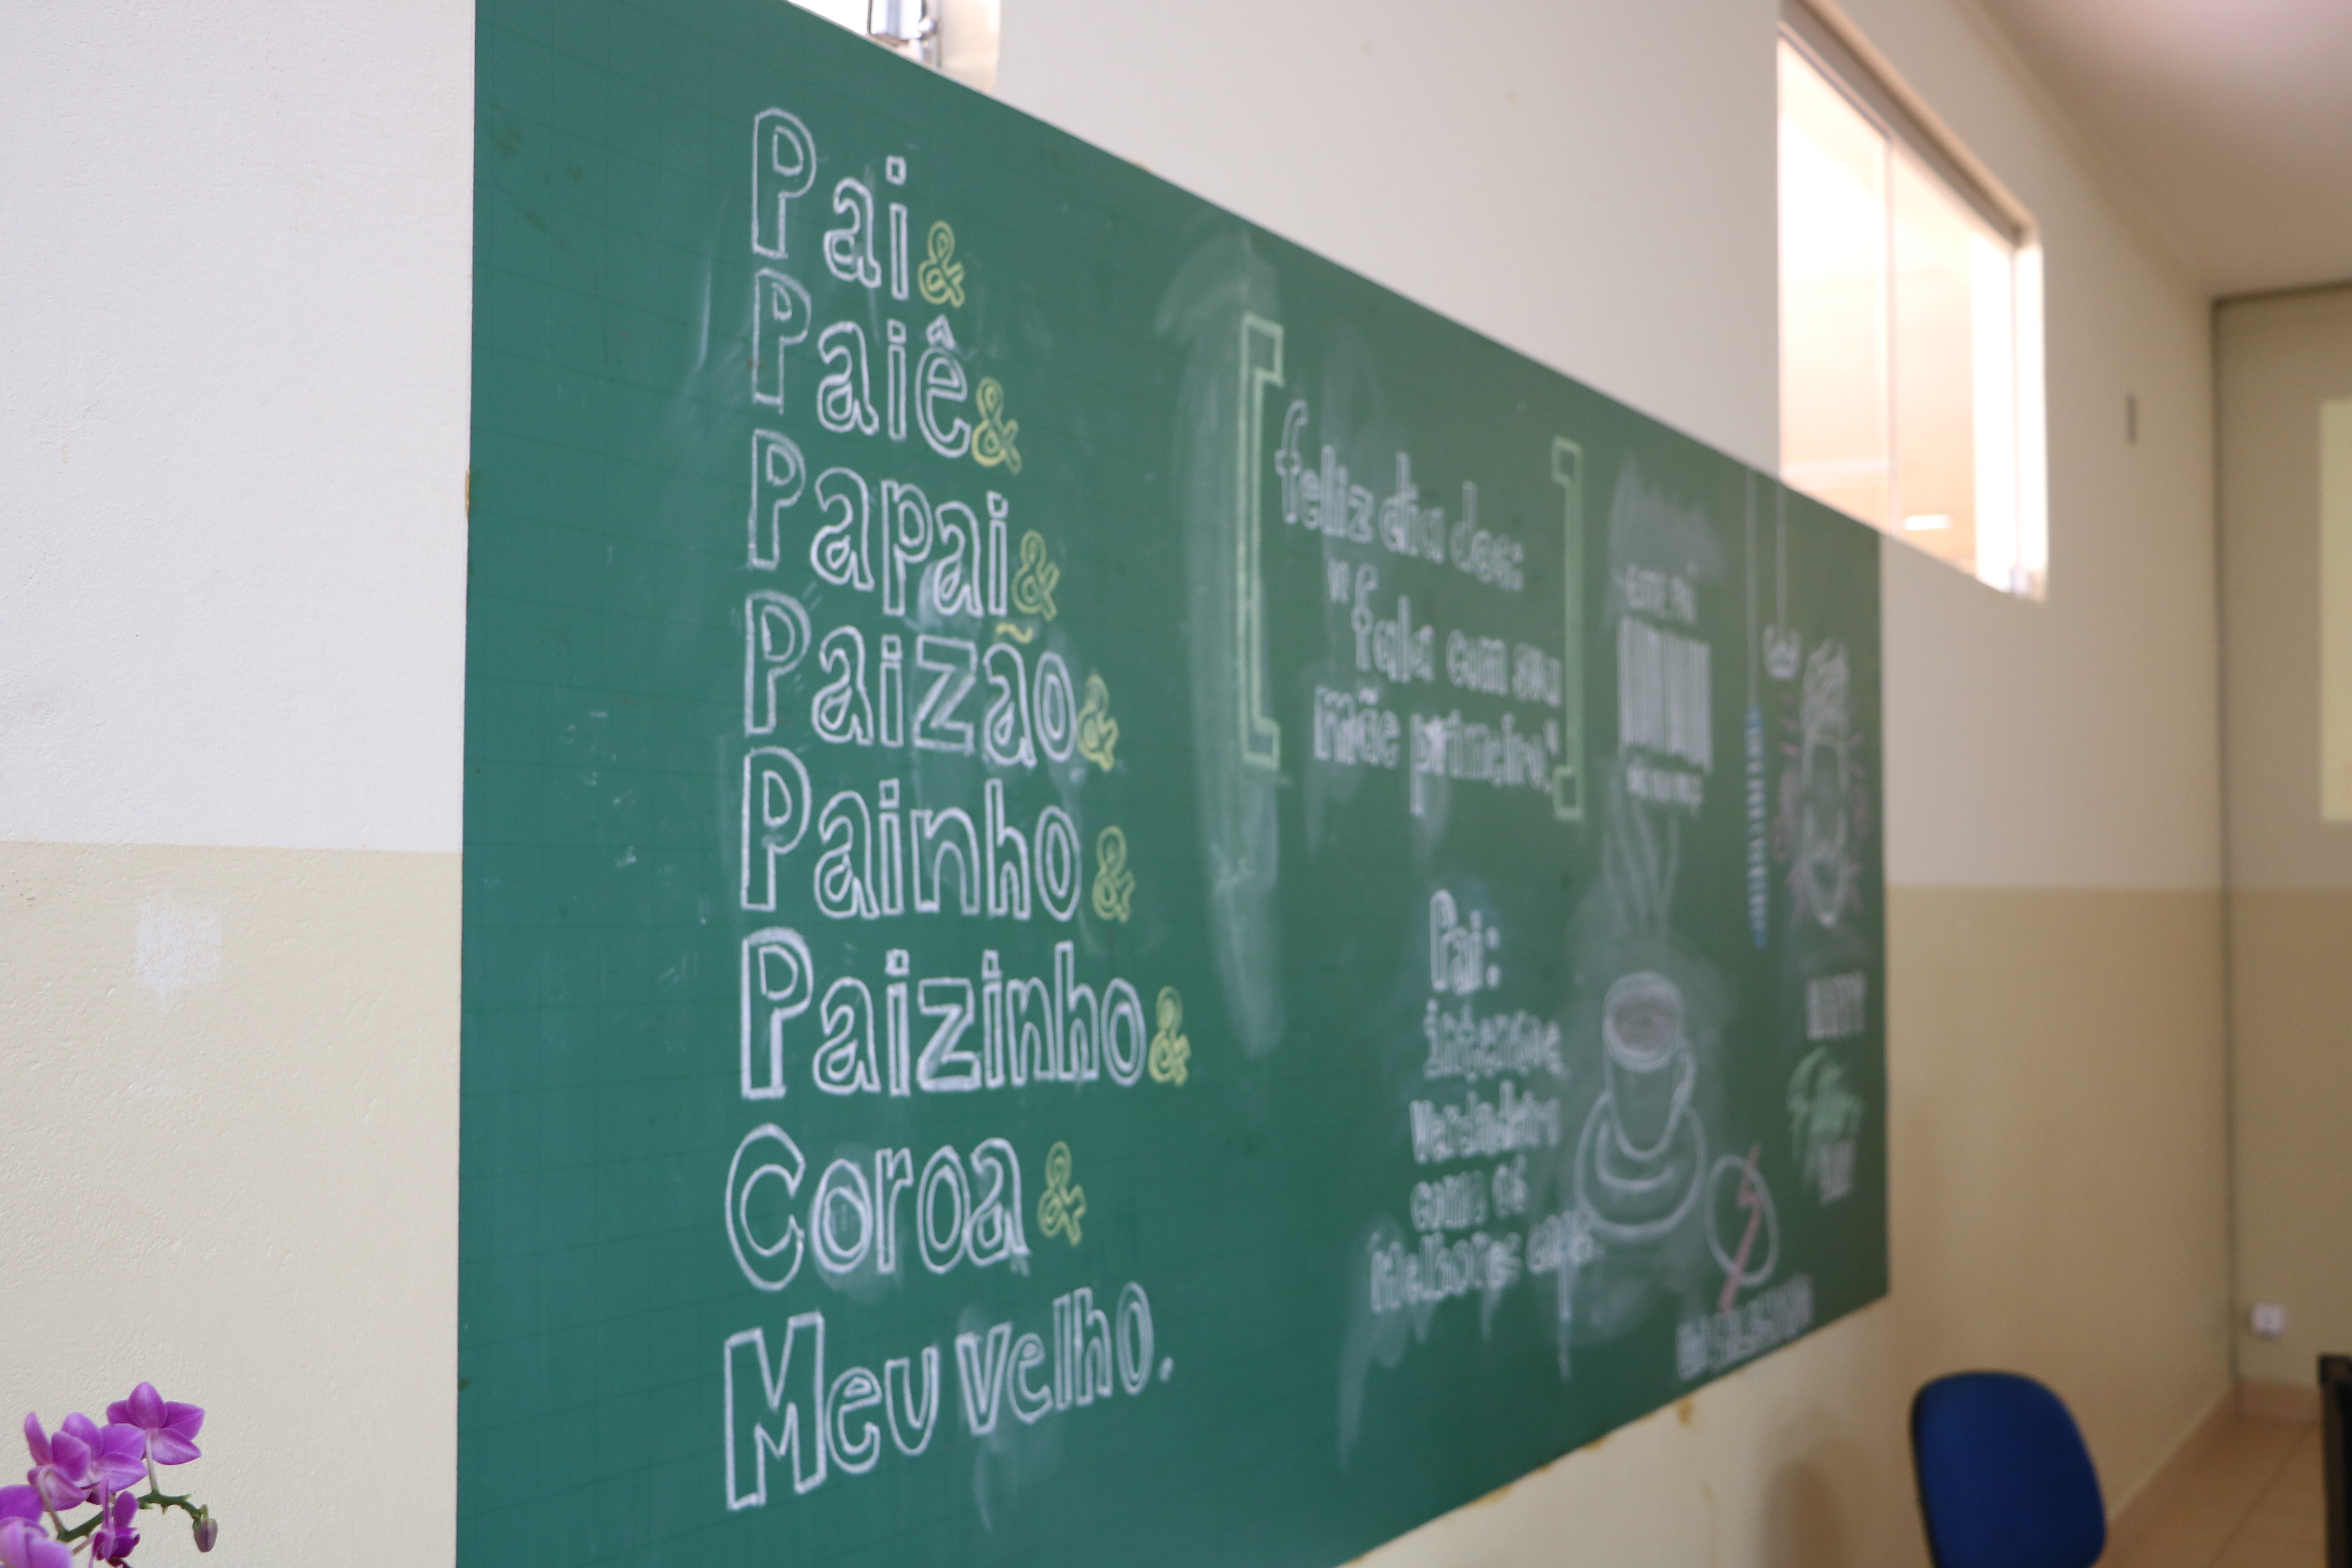 Pai &
Paiê &
Papai &
Paizão &
Painho &
Paizinho &
Coroa &
Meu velho.
feliz dia dos:
"
fala com sua
mãe primeiro."
Pai:
intenso e
Verdadeiro
como os
Melhores cafés.
HAPPY